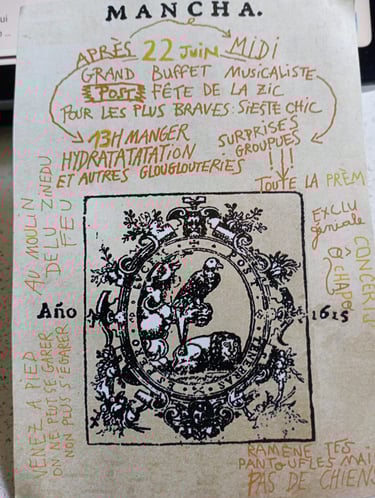 MANCHA.
APRÈS 22 JUIN MIDI
GRAND BUFFET MUSICALISTE
POST FÊTE DE LA ZIC
POUR LES PLUS BRAVES: SIESTE CHIC
13H MANGER
HYDRATATATATION
ET AUTRES GLOUGLOUTERIES
SURPRISES
GROUPUES
!!!
TOUTE LA PRÈM
EXCLU
géniale
CHAPO
CONCER
AU MOULIN
DE LU ZINEDU
FEU
VENEZ A PIED
ON NE PEUT SE GARER
NON PLUS S'ÉGARER
Año
1615
POS
RAMENE TES
PANTOUFLES MAI
PAS DE CHIENS